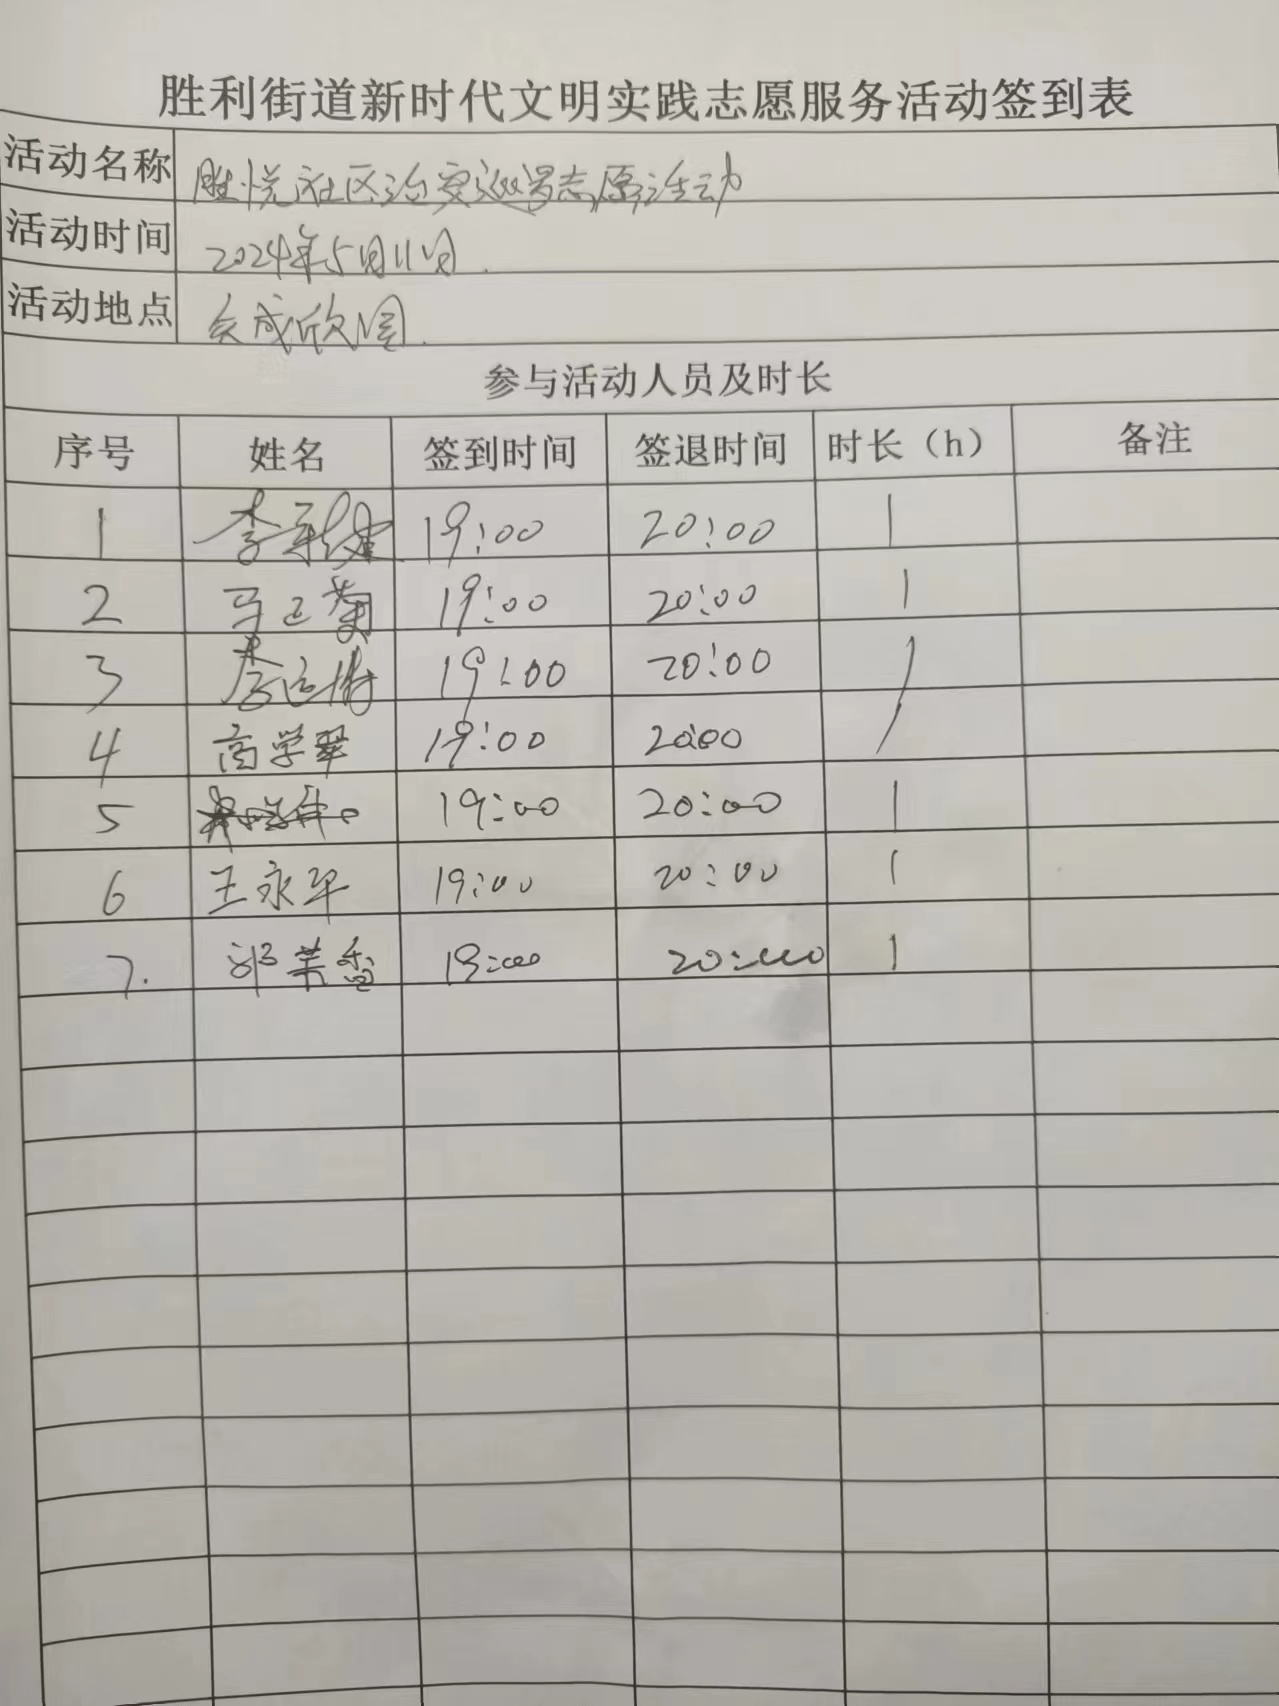 胜利街道新时代文明实践志愿服务活动签到表
活动名称 胜悦社区治安巡逻志愿活动
活动时间 2024年5月11日.
活动地点 众成欣园.
参与活动人员及时长
序号 姓名 签到时间 签退时间 时长（h） 备注
1 李 19:00 20:00 1
2 马 菊 19:00 20:00 1
3 李 19:00 20:00 1
4 商学翠 19:00 20:00 1
5 19:00 20:00 1
6 王永华 19:00 20:00 1
7. 郭美香 19:00 20:00 1